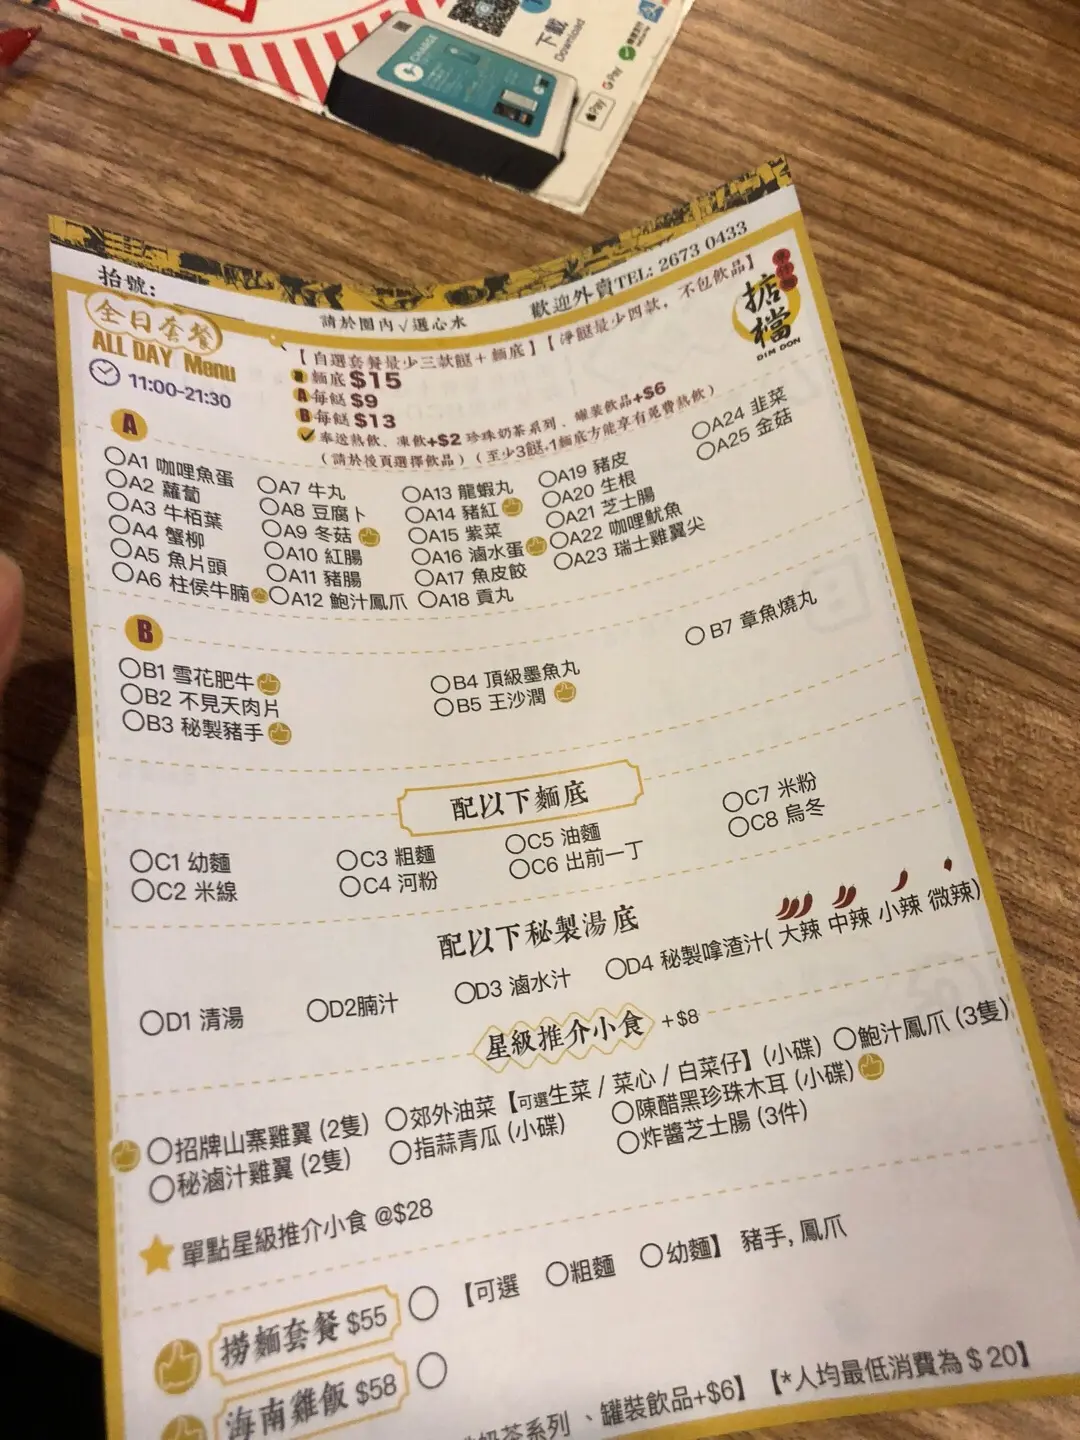 CHARGE
下載
Download
G Pay
Pay
抬號:
請於圈內√選心水
歡迎外賣TEL: 2673 0433
掂檔
DIM DON
全日套餐
ALL DAY Menu
11:00-21:30
【自選套餐最少三款餸+麵底】【淨餸最少四款，不包飲品】
麵底 $15
A 每餸 $9
B 每餸 $13
奉送熱飲、凍飲+$2 珍珠奶茶系列、罐裝飲品+$6
(請於後頁選擇飲品) (至少3餸,1麵底方能享有免費熱飲)
A
A1 咖哩魚蛋
A2 蘿蔔
A3 牛栢葉
A4 蟹柳
A5 魚片頭
A6 柱侯牛腩
A7 牛丸
A8 豆腐卜
A9 冬菇
A10 紅腸
A11 豬腸
A12 鮑汁鳳爪
A13 龍蝦丸
A14 豬紅
A15 紫菜
A16 滷水蛋
A17 魚皮餃
A18 貢丸
A19 豬皮
A20 生根
A21 芝士腸
A22 咖哩魷魚
A23 瑞士雞翼尖
A24 韭菜
A25 金菇
B
B1 雪花肥牛
B2 不見天肉片
B3 秘製豬手
B4 頂級墨魚丸
B5 王沙潤
B7 章魚燒丸
配以下麵底
C1 幼麵
C2 米線
C3 粗麵
C4 河粉
C5 油麵
C6 出前一丁
C7 米粉
C8 烏冬
配以下秘製湯底
D1 清湯
D2腩汁
D3 滷水汁
D4 秘製嗱渣汁( 大辣 中辣 小辣 微辣)
星級推介小食 +$8
招牌山寨雞翼 (2隻)
秘滷汁雞翼 (2隻)
郊外油菜【可選生菜 / 菜心 / 白菜仔】(小碟)
指蒜青瓜 (小碟)
鮑汁鳳爪 (3隻)
陳醋黑珍珠木耳 (小碟)
炸醬芝士腸 (3件)
單點星級推介小食 @$28
撈麵套餐 $55 【可選 粗麵 幼麵】 豬手, 鳳爪
海南雞飯 $58
奶茶系列 、罐裝飲品+$6】【*人均最低消費為 $ 20】